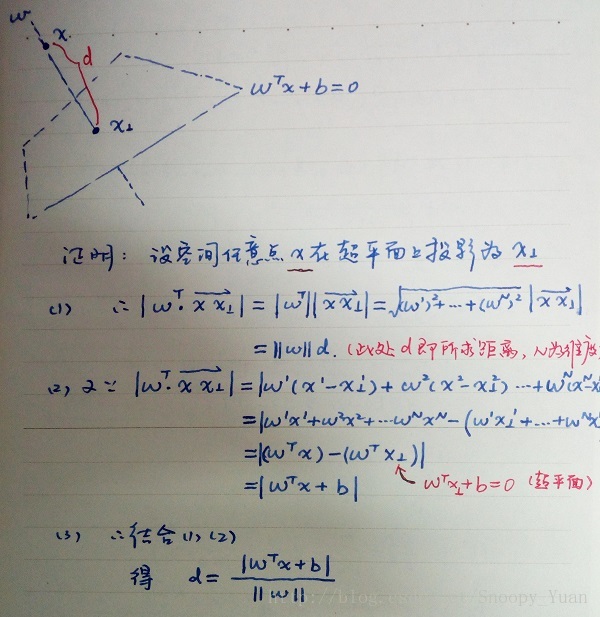 w
x
d
x⊥
wᵀx+b=0
证明: 设空间任意点 x 在超平面上投影为 x⊥
(1) ∵ |wᵀ·xx⊥| = |wᵀ||xx⊥| = √((w¹)²+···+(wᴺ)²) |xx⊥|
= ||w||d. (此处 d 即所求距离, N为维度
(2) 又∵ |wᵀ·xx⊥| = |w¹(x¹-x⊥¹) + w²(x²-x⊥²)···+wᴺ(xᴺ-x
= |w¹x¹+w²x²+···wᴺxᴺ-(w¹x⊥¹+···+wᴺx
= |(wᵀx)-(wᵀx⊥)|
= |wᵀx+b| wᵀx⊥+b=0 (超平面)
(3) ∴结合(1),(2)
得 d= |wᵀx+b| / ||w||
http://blog.cs Snoopy_Yuan